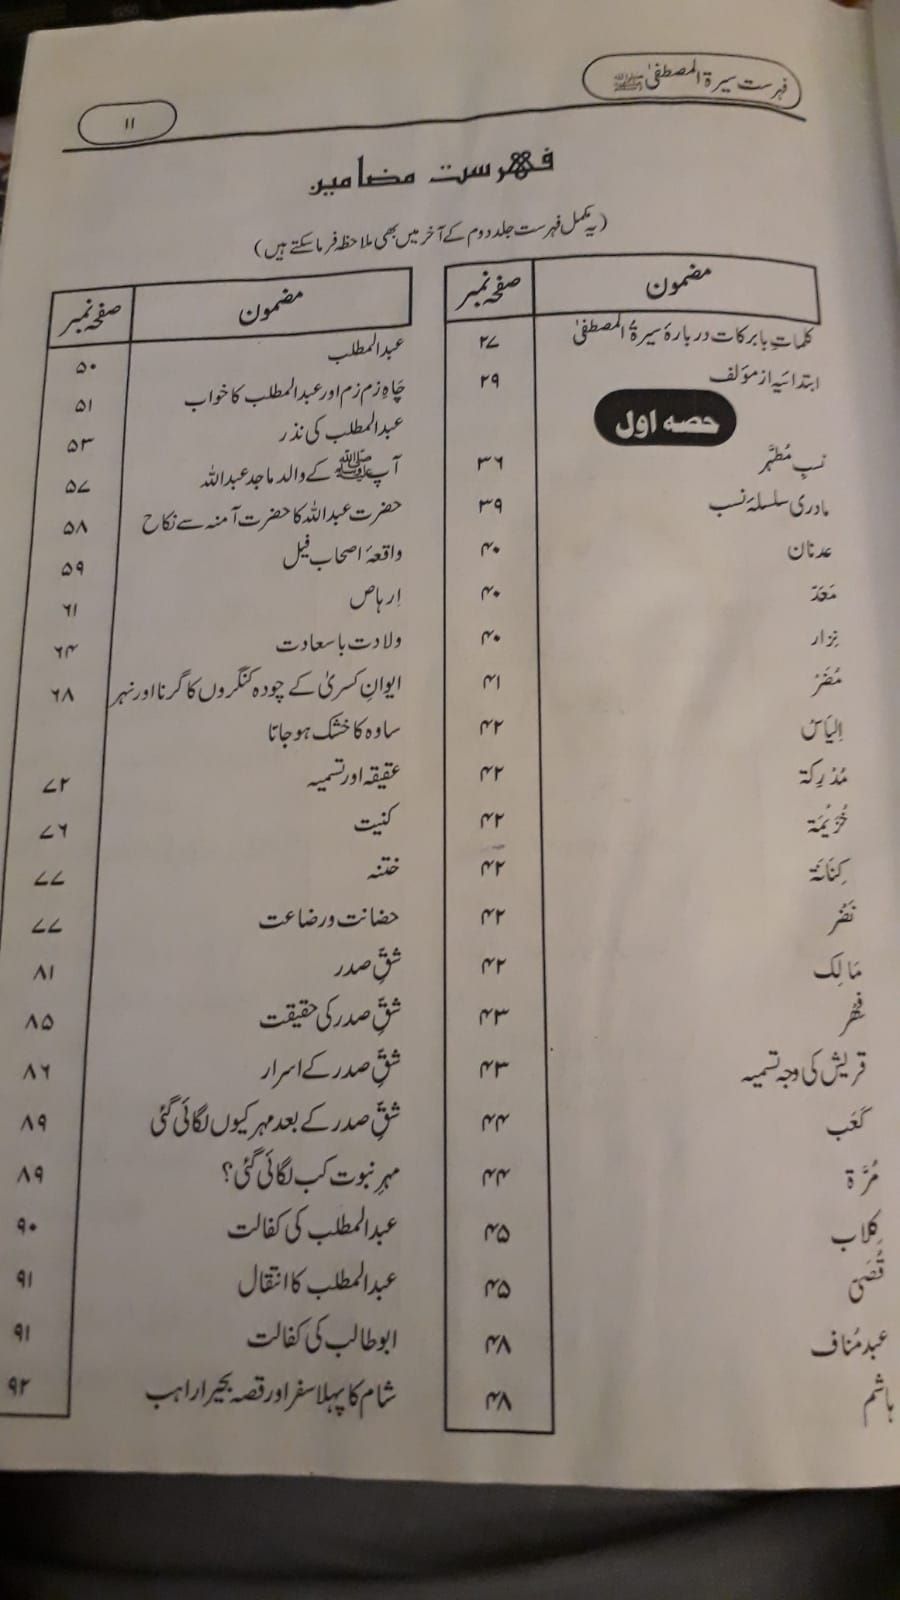 فہرست سیرۃ المصطفیٰ ﷺ
۱۱
فہرست مضامین
(یہ مکمل فہرست جلد دوم کے آخر میں بھی ملاحظہ فرما سکتے ہیں)
مضمون صفحہ نمبر
کلماتِ بابرکات دربارۂ سیرۃُ المصطفیٰ ۲۷
ابتدائیہ از مؤلف ۲۹
حصہ اول
نسبِ مُطہَّر ۳۶
مادری سلسلۂ نسب ۳۹
عدنان ۴۰
مَعَدّ ۴۰
نِزار ۴۰
مُضَرْ ۴۱
اِلیَاسْ ۴۲
مُدْرِکۃ ۴۲
خُزَیْمَۃ ۴۲
کِنَانَۃ ۴۲
نَضْر ۴۲
مَالِک ۴۲
فِھْر ۴۳
قریش کی وجہ تسمیہ ۴۳
کَعَب ۴۴
مُرَّۃ ۴۴
کِلاب ۴۵
قُصَی ۴۵
عبدمُناف ۴۸
ہاشم ۴۸
مضمون صفحہ نمبر
عبدالمطلب ۵۰
چَاہِ زم زم اور عبدالمطلب کا خواب ۵۱
عبدالمطلب کی نذر ۵۳
آپ ﷺ کے والد ماجد عبداللہ ۵۷
حضرت عبداللہ کا حضرت آمنہ سے نکاح ۵۸
واقعۂ اصحاب فیل ۵۹
اِرہاص ۶۱
ولادت باسعادت ۶۴
ایوانِ کسریٰ کے چودہ کنگروں کا گرنا اور نہر ۶۸
ساوہ کا خشک ہوجاتا
عقیقہ اور تسمیہ ۷۲
کنیت ۷۶
ختنہ ۷۷
حضانت ورضاعت ۷۷
شقِّ صدر ۸۱
شقِّ صدر کی حقیقت ۸۵
شقِّ صدر کے اسرار ۸۶
شقِّ صدر کے بعد مہر کیوں لگائی گئی ۸۹
مہرِ نبوت کب لگائی گئی؟ ۸۹
عبدالمطلب کی کفالت ۹۰
عبدالمطلب کا انتقال ۹۱
ابوطالب کی کفالت ۹۱
شام کا پہلا سفر اور قصہ بحیرا راہب ۹۲